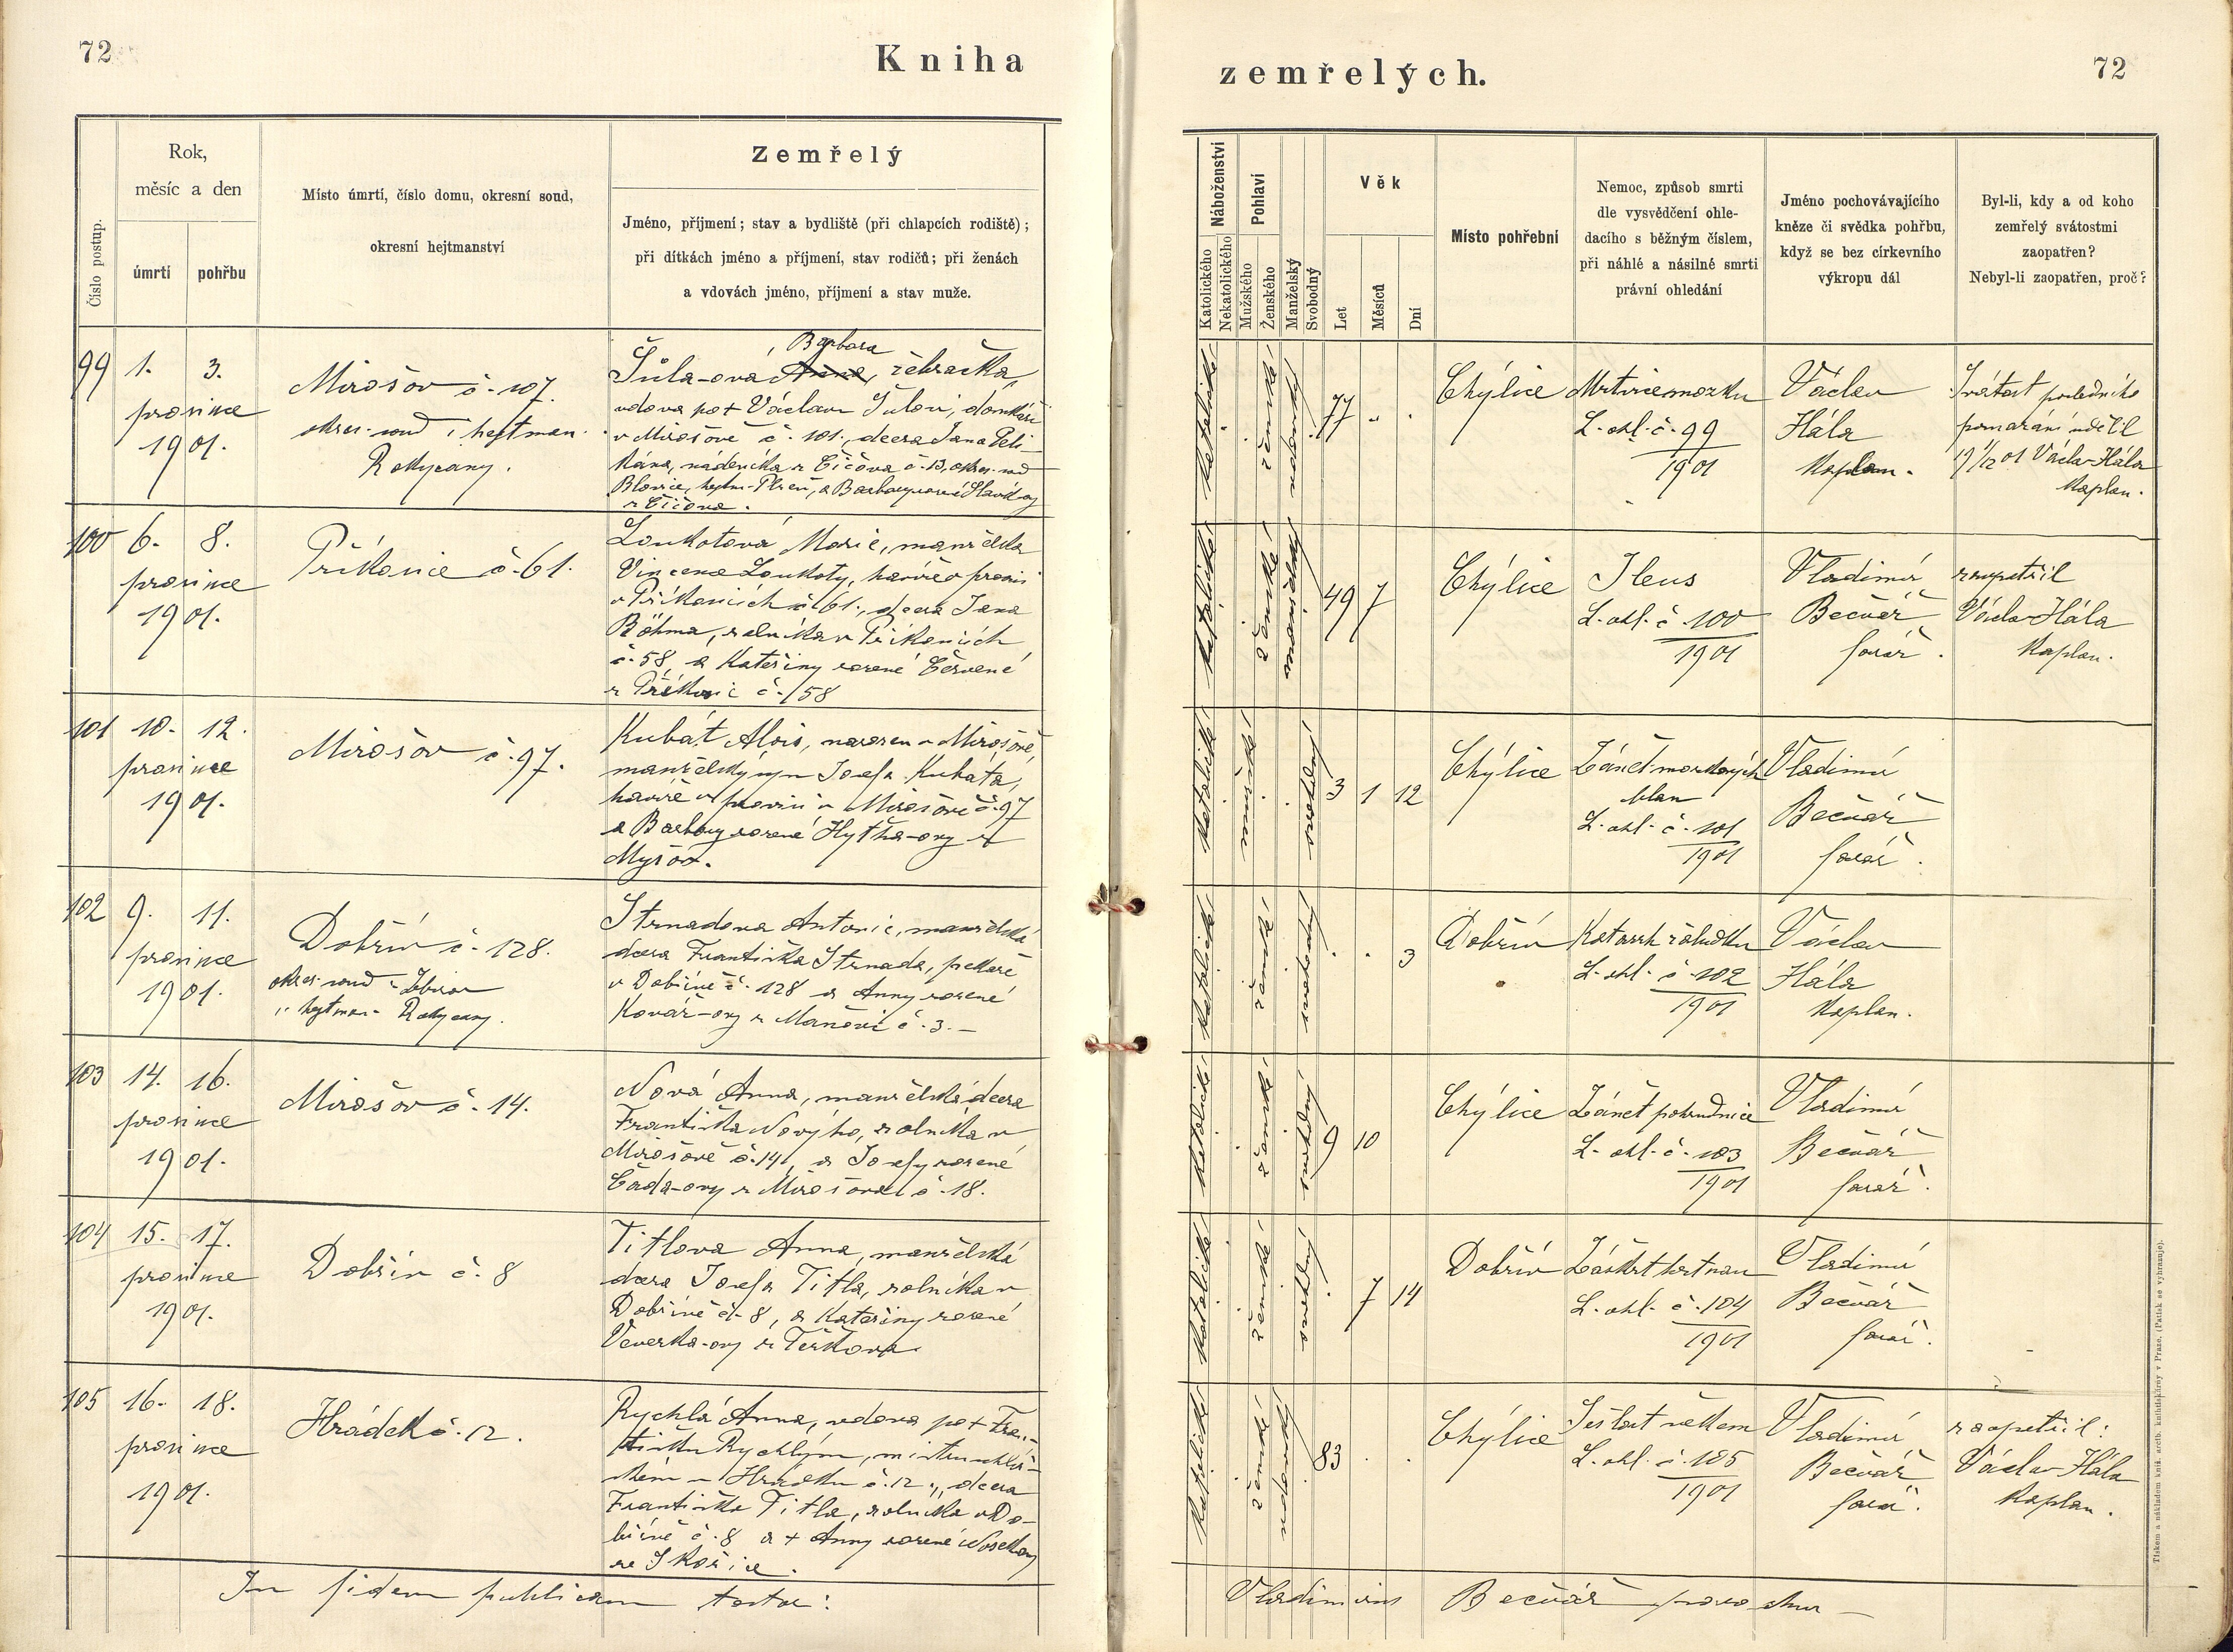 72
Kniha
Číslo postup.
Rok,
měsíc a den
úmrtí
pohřbu
Místo úmrtí, číslo domu, okresní soud,
okresní hejtmanství
Zemřelý
Jméno, příjmení; stav a bydliště (při chlapcích rodiště);
při dítkách jméno a příjmení, stav rodičů; při ženách
a vdovách jméno, příjmení a stav muže.
99 1. 3.
prosince
1901.
Mirošov č. 107.
okres. soud i hejtman.
Rokycany.
Barbora
Šůla-ová Anna, žebračka,
vdova po + Václavu Šulovi, domkáři
v Mirošově č. 101., dcera Jana Peli-
kána, nádeníka z Čičova č. 13, okres. soud
Blovice, hejtm. Plzeň, a Barbory rozené
z Čičova.
100 6. 8.
prosince
1901.
Příkosice č. 61.
Loukotová Marie, manželka
Vincence Loukoty, havíře v provisi
v Příkosicích č. 61., dcera Jana
Böhma, rolníka v Příkosicích
č. 58, a Kateřiny rozené Červené
z Příkosic č. 58
101 10. 12.
prosince
1901.
Mirošov č. 97.
Kubát Alois, narozen v Mirošově,
manželský syn Josefa Kubáta,
havíře v provisi v Mirošově č. 97
a Barbory rozené Hytha-ovy z
Myšov.
102 9. 11.
prosince
1901.
Dobřív č. 128.
okres. soud Zbirov
" hejtman. Rokycany.
Strnadova Antonie, manželská
dcera Františka Strnada, pekaře
v Dobřívě č. 128 a Anny rozené
Kovář-ovy z Maňovic č. 3. –
103 14. 16.
prosince
1901.
Mirošov č. 14.
Nová Anna, manželská dcera
Františka Nového, rolníka v
Mirošově č. 14, a Josefy rozené
Čada-ovy z Mirošova č. 18.
104 15. 17.
prosince
1901.
Dobřív č. 8
Titlova Anna, manželská
dcera Josefa Titla, rolníka v
Dobřívě č. 8, a Kateřiny rozené
Veverka-ovy z Těškova.
105 16. 18.
prosince
1901.
Hrádek č. 12.
Rychlá Anna, vdova po + Fran-
tišku Rychlým,
v Hrádku č. 12., dcera
Františka Titla, rolníka v Do-
břívě č. 8 a + Anny rozené Noskovy
ze Skořic.
In fidem publicam testor:
zemřelých.
72
Náboženství
Katolického
Nekatolického
Pohlaví
Mužského
Ženského
Manželský
Svobodný
Věk
Let
Měsíců
Dní
Místo pohřební
Nemoc, způsob smrti
dle vysvědčení ohle-
dacího s běžným číslem,
při náhlé a násilné smrti
právní ohledání
Jméno pochovávajícího
kněze či svědka pohřbu,
když se bez církevního
výkropu dál
Byl-li, kdy a od koho
zemřelý svátostmi
zaopatřen?
Nebyl-li zaopatřen, proč?
katolické ženské vdovský 77
Chýlice
Mrtvice mozku
L. ohl. č. 99
1901
Václav
Hála
kaplan.
Svátost posledního
pomazání udělil
1/12 01 Václav Hála
kaplan.
katolické ženské manželský 49 7
Chýlice
Ileus
L. ohl. č. 100
1901
Vladimír
Bečvář
farář.
zaopatřil
Václav Hála
kaplan.
katolické mužské svobodný 3 1 12
Chýlice
Zánět mozkových
blan
L. ohl. č. 101
1901
Vladimír
Bečvář
farář.
katolické ženské svobodný 3
Dobřív
Katarrh žaludku
L. ohl. č. 102
1901
Václav
Hála
kaplan.
katolické ženské svobodný 9 10
Chýlice
Zánět pohrudnice
L. ohl. č. 103
1901
Vladimír
Bečvář
farář.
katolické ženské svobodný 7 14
Dobřív
Záškrt hrtanu
L. ohl. č. 104
1901
Vladimír
Bečvář
farář.
katolické ženské vdovský 83
Chýlice
Sešlost věkem
L. ohl. č. 105
1901
Vladimír
Bečvář
farář.
zaopatřil:
Václav Hála
kaplan.
Vladimirus Bečvář parochus
Tiskem a nákladem kníž. arcib. knihtiskárny v Praze. (Patisk se vyhrazuje).